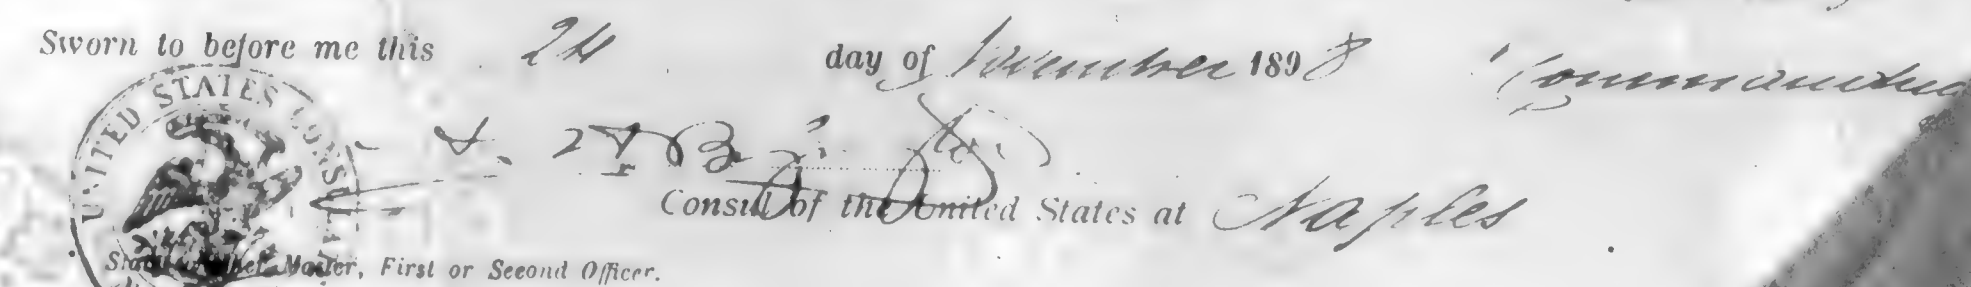 Sworn to before me this 24 day of November 1898
Commander
UNITED STATES CONSULATE
Consul of the United States at Naples
Master, First or Second Officer.